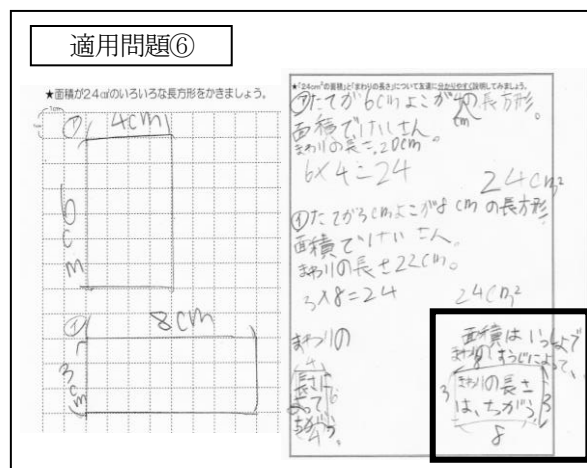 適用問題⑥
★面積が24㎠のいろいろな長方形をかきましょう。
1cm
㋐ 4cm
6cm
㋑ 8cm
3cm
★「24cm²の面積」と「まわりの長さ」について友達に分かりやすく説明してみましょう。
㋐たてが6cmよこが4の長方形。
cm
面積でけいさん。
まわりの長さ20cm。
6×4=24 24cm²
㋑たてが3cmよこが8cmの長方形
面積でけいさん。
まわりの長さ22cm。
3×8=24 24cm²
まわりの
4
よって 6
ちがう。
4
面積はいっしょで
まわりのすうじによって、
8
3 まわりの長さ 3
は、ちがう
8